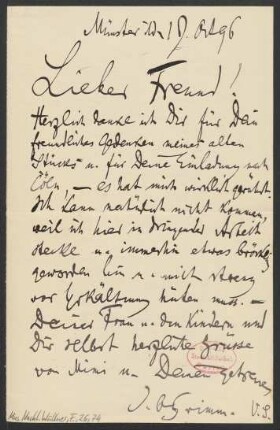 Münster i/W 17. Okt 96
Lieber Freund!
Herzlich danke ich Dir für Dein
freundliches Gedenken meines alten
Stücks u. für Deine Einladung nach
Cöln, – es hat mich wirklich gerührt.
Ich kann natürlich nicht kommen,
weil ich hier in dringender Arbeit
stecke u. immerhin etwas
geworden bin u. mich streng
vor Erkältung hüten muss. –
Deiner Frau u. den Kindern und
Dir selbst herzliche Grüsse
von Mimi u. Deinem getreuen
J. O. Grimm.
V. S.